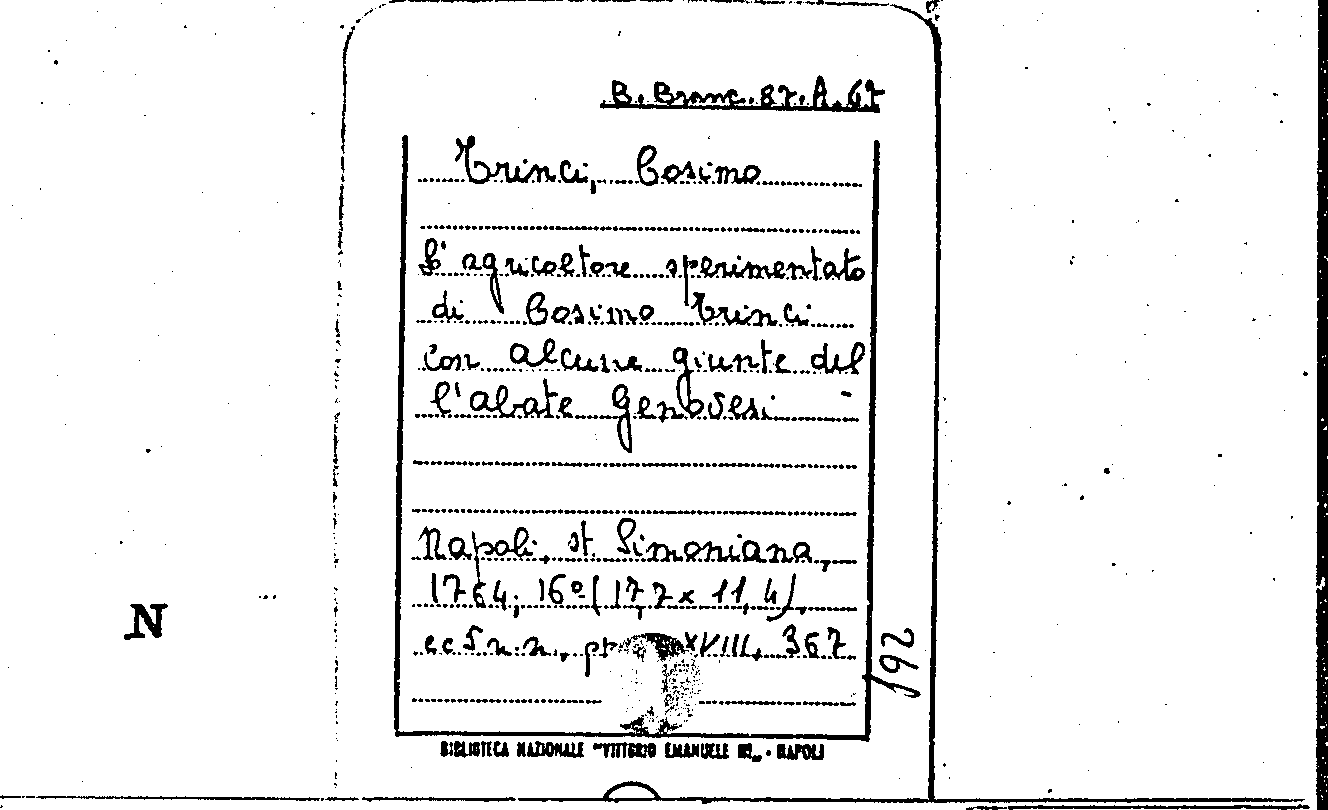 B. Branc. 87. A. 67
Trinci, Cosimo
L'agricoltore sperimentato
di Cosimo Trinci
con alcune giunte del
l'abate Genovesi -
Napoli, st. Simoniana,
1764, 16º (17,7 x 11,4),
cc 5 n.n., XVIII, 367
192
N
BIBLIOTECA NAZIONALE "VITTORIO EMANUELE III" - NAPOLI